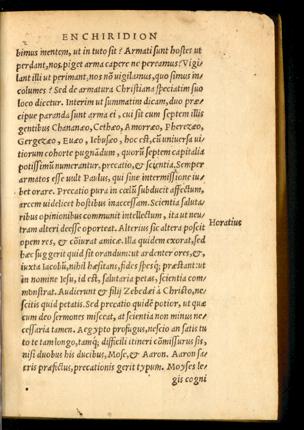 ENCHIRIDION
bimus mentem, ut in tuto sit? Armati sunt hostes ut
perdant, nos piget arma capere ne pereamus? Vigi/
lant illi ut perimant, nos nõ vigilamus, quo simus in/
columes? Sed de armatura Christiana speciatim suo
loco dicetur. Interim ut summatim dicam, duo præ/
cipue paranda sunt arma ei, cui sit cum septem illis
gentibus Chananæo, Cethæo, Amorræo, Pherezæo,
Gergezæo, Euæo, Iebusæo, hoc est, cũ uniuersa ui/
tiorum cohorte pugnãdum, quorũ septem capitalia
potissimũ numerantur, precatio, & scientia. Semper
armatos esse uult Paulus, qui sine intermissione iu/
bet orare. Precatio pura in cœlũ subducit affectum,
arcem uidelicet hostibus inaccessam. Scientia saluta/
ribus opinionibus communit intellectum, ita ut neu/
trum alteri deesse oporteat. Alterius sic altera poscit
Horatius
opem res, & cõiurat amice. Illa quidem exorat, sed
hæc suggerit quid sit orandum: ut ardenter ores, &,
iuxta Iacobũ, nihil hæsitans, fides spesq; præstant: ut
in nomine Iesu, id est, salutaria petas, scientia com/
mõnstrat. Audierunt & filij Zebedæi à Christo, ne/
scitis quid petatis. Sed precatio quidẽ potior, ut quæ
cum deo sermones misceat, at scientia non minus ne/
cessaria tamen. Aegypto profugus, nescio an satis tu
to te tam longo, tamq; difficili itineri cõmissurus sis,
nisi duobus his ducibus, Mose, & Aaron. Aaron sa/
cris præfectus, precationis gerit typum. Moyses le/
gis cogni